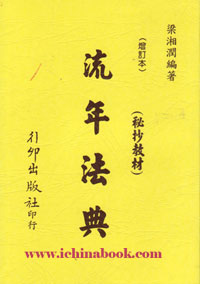 梁湘潤編著
(增訂本)
流年法典
(秘抄教材)
行卯出版社印行
www.ichinabook.com